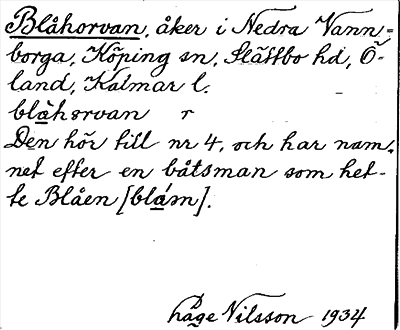 Blåhorvan, åker i Nedra Vann-
borga, Köping sn, Slättbo hd, Ö-
land, Kalmar l.
blàhorvan r
Den hör till nr 4, och har nam-
net efter en båtsman som het-
te Blåen [blám].
Håge Nilsson 1934